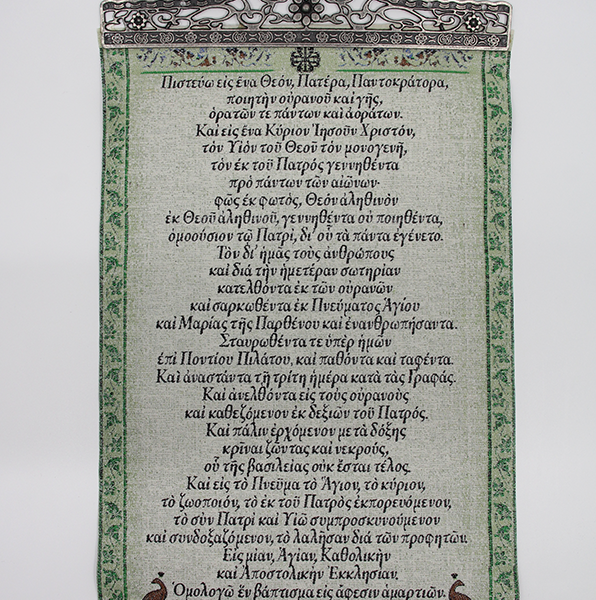 Πιστεύω εἰς ἕνα Θεόν, Πατέρα, Παντοκράτορα,
ποιητὴν οὐρανοῦ καὶ γῆς,
ὁρατῶν τε πάντων καὶ ἀοράτων.
Καὶ εἰς ἕνα Κύριον Ἰησοῦν Χριστόν,
τὸν Υἱὸν τοῦ Θεοῦ τὸν μονογενῆ,
τὸν ἐκ τοῦ Πατρὸς γεννηθέντα
πρὸ πάντων τῶν αἰώνων·
φῶς ἐκ φωτός, Θεὸν ἀληθινὸν
ἐκ Θεοῦ ἀληθινοῦ, γεννηθέντα οὐ ποιηθέντα,
ὁμοούσιον τῷ Πατρί, δι' οὗ τὰ πάντα ἐγένετο.
Τὸν δι' ἡμᾶς τοὺς ἀνθρώπους
καὶ διὰ τὴν ἡμετέραν σωτηρίαν
κατελθόντα ἐκ τῶν οὐρανῶν
καὶ σαρκωθέντα ἐκ Πνεύματος Ἁγίου
καὶ Μαρίας τῆς Παρθένου καὶ ἐνανθρωπήσαντα.
Σταυρωθέντα τε ὑπὲρ ἡμῶν
ἐπὶ Ποντίου Πιλάτου, καὶ παθόντα καὶ ταφέντα.
Καὶ ἀναστάντα τῇ τρίτῃ ἡμέρᾳ κατὰ τὰς Γραφάς.
Καὶ ἀνελθόντα εἰς τοὺς οὐρανοὺς
καὶ καθεζόμενον ἐκ δεξιῶν τοῦ Πατρός.
Καὶ πάλιν ἐρχόμενον μετὰ δόξης
κρῖναι ζῶντας καὶ νεκρούς,
οὗ τῆς βασιλείας οὐκ ἔσται τέλος.
Καὶ εἰς τὸ Πνεῦμα τὸ Ἅγιον, τὸ κύριον,
τὸ ζωοποιόν, τὸ ἐκ τοῦ Πατρὸς ἐκπορευόμενον,
τὸ σὺν Πατρὶ καὶ Υἱῷ συμπροσκυνούμενον
καὶ συνδοξαζόμενον, τὸ λαλῆσαν διὰ τῶν προφητῶν.
Εἰς μίαν, Ἁγίαν, Καθολικὴν
καὶ Ἀποστολικὴν Ἐκκλησίαν.
Ὁμολογῶ ἓν βάπτισμα εἰς ἄφεσιν ἁμαρτιῶν.